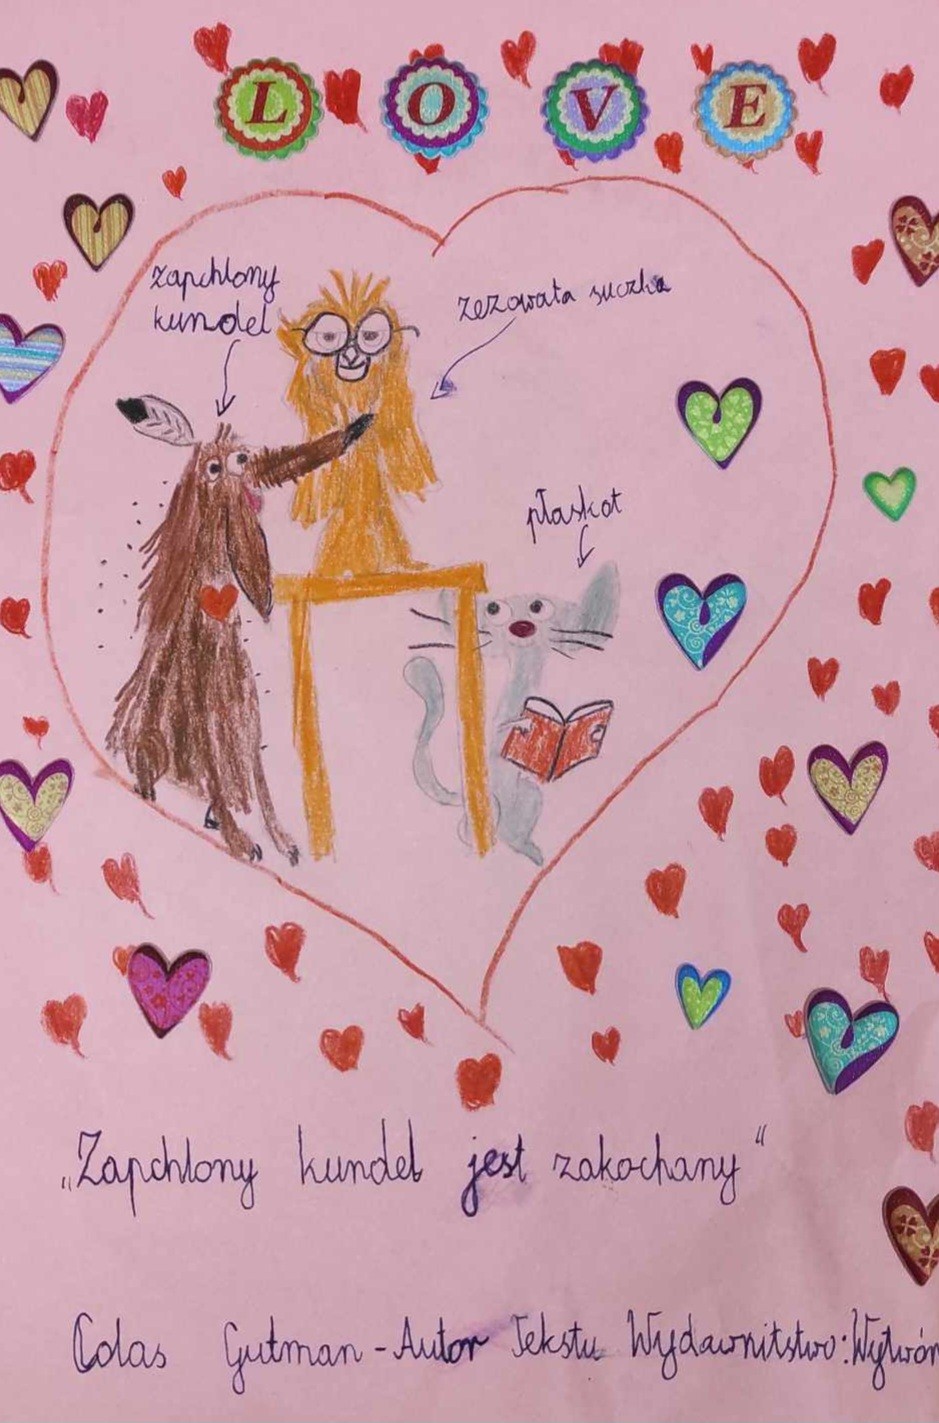 LOVE
zapchlony
kundel
zezowata suczka
płaskot
„Zapchlony kundel jest zakochany“
Colas Gutman - Autor Tekstu Wydawnitstwo: Wytwór